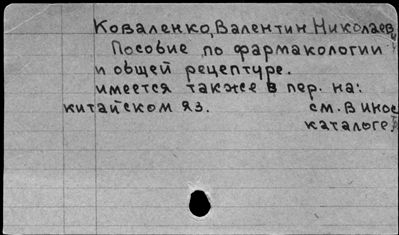 Коваленко, Валентин Николаевич
Пособие по фармакологии
и общей рецептуре.
имеется также в пер. на:
китайском яз. см. в иност.
каталоге